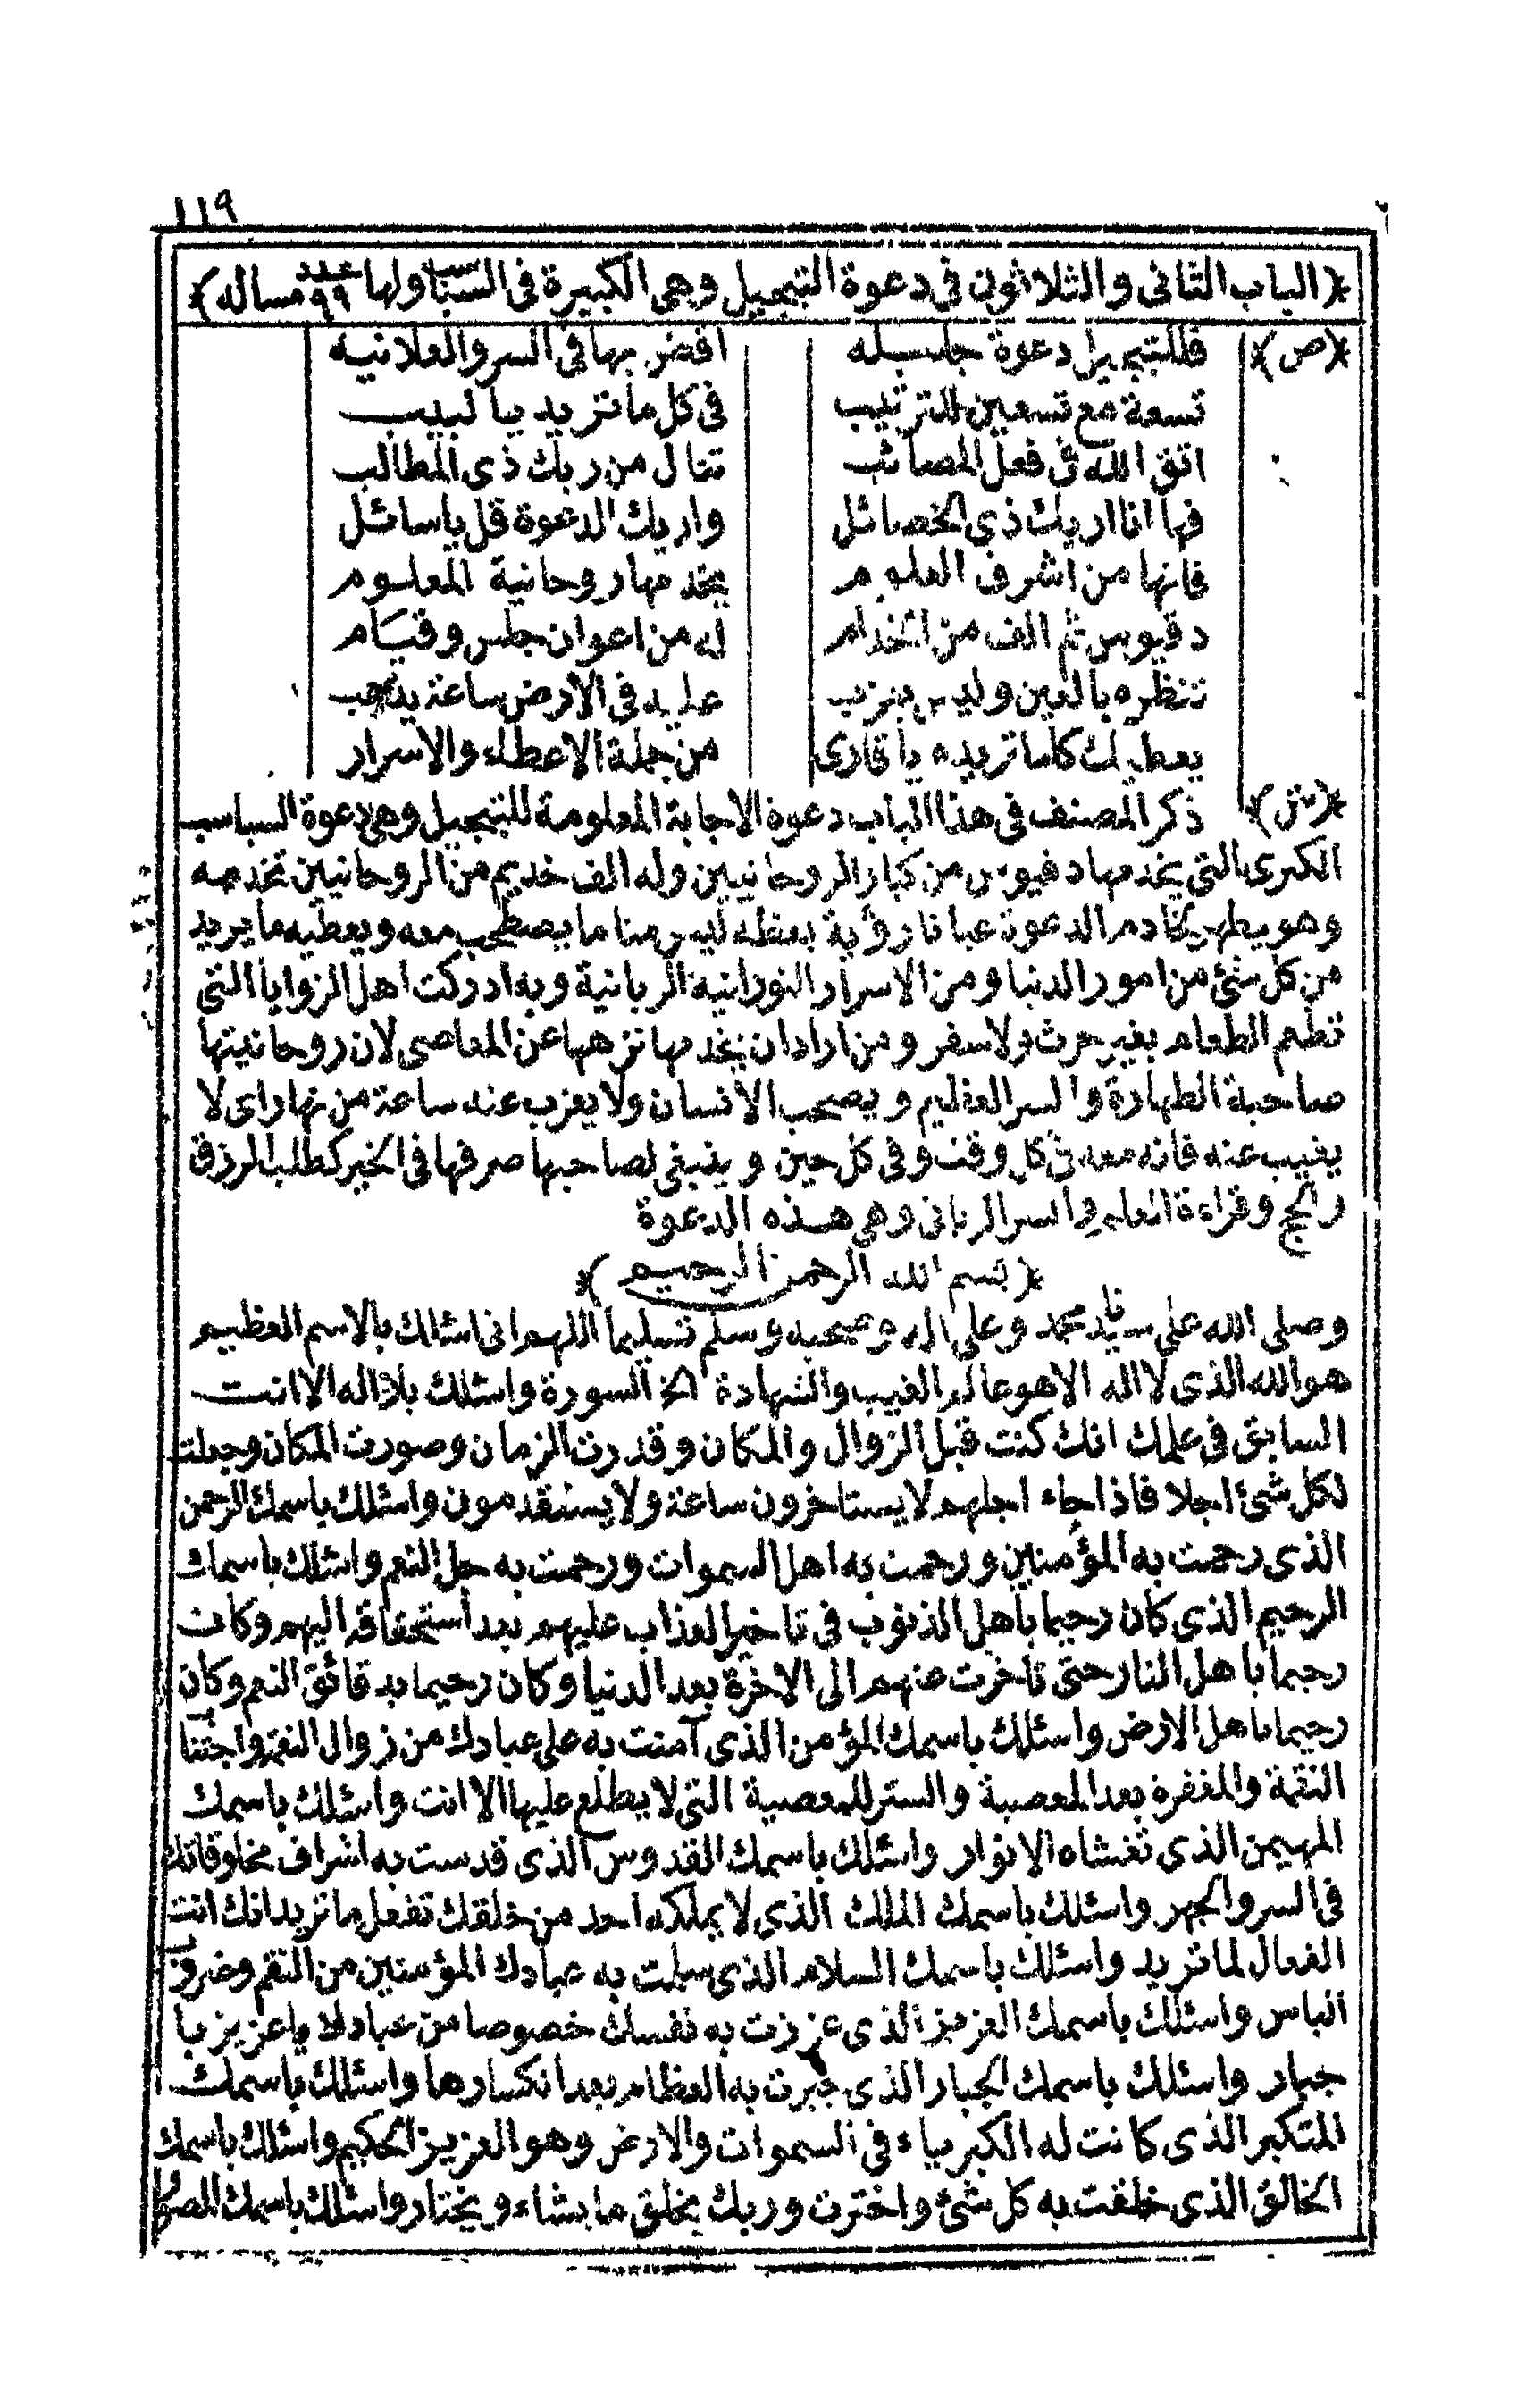 ١١٩
﴿الباب الثانى والثلاثون فى دعوة التبجيل وهى الكبيرة فى السبا ولها عدد ٩٩ مساله﴾
﴿ص﴾ فللتبجيل دعوة جلسيله افض بها فى السر والعلانيه
تسعة مع تسعين للترتيب فى كل ما تريد يا لبيب
اتق الله فى فعل المصائب تنال من ربك ذى المطالب
فها انا اريك ذى الخصائل واريك الدعوة قل يا سائل
فانها من اشرف العلوم يخدمها روحانية المعلوم
دفيوس ثم الف من الخدام له من اعوان جلس وقيام
تنظره بالعين وليس يغزب عليه فى الارض ساعة يذهب
يعطيك كلما تريده يا قارى من جملة الاعطاء والاسرار
﴿ش﴾ ذكر المصنف فى هذا الباب دعوة الاجابة المعلومة للتبجيل وهى دعوة السباسب
الكبرى التى يخدمها دفيوس من كبار الروحانيين وله الف خديم من الروحانيين تخدمه
وهو يظهر لخادم الدعوة عيانا رؤية يعظه ليس منا ما يصطحب معه ويعطيه ما يريد
من كل شئ من امور الدنيا ومن الاسرار النورانية الربانية وبه ادركت اهل الزوايا التى
تطعم الطعام بغير حرث ولا سفر ومن اراد ان يخدمها نزهها عن المعاصى لان روحانيتها
صاحبة الطهارة والسر العظيم ويصحب الانسان ولا يعزب عنه ساعة من نهار اى لا
يغيب عنه فانه معه فى كل وقت وفى كل حين وينبغى لصاحبها صرفها فى الخير كطلب الرزق
والحج وقراءة العلم والسر الربانى وهى هذه الدعوة
﴿بسم الله الرحمن الرحيم﴾
وصلى الله على سيدنا محمد وعلى اله وصحبه وسلم تسليما اللهم انى اسئلك بالاسم العظيم
هو الله الذى لا اله الا هو عالم الغيب والشهادة الخ السورة واسئلك بلا اله الا انت
السابق فى علمك انك كنت قبل الزوال والمكان وقدرت الزمان وصورت المكان وجعلت
لكل شئ اجلا فاذا جاء اجلهم لا يستاخرون ساعة ولا يستقدمون واسئلك باسمك الرحمن
الذى رحمت به المؤمنين ورحمت به اهل السموات ورحمت به جل النعم واسئلك باسمك
الرحيم الذى كان رحيما باهل الذنوب فى تاخير العذاب عليهم بعد استحقاقه اليهم وكان
رحيما باهل النار حتى تاخرت عنهم الى الاخرة بعد الدنيا وكان رحيما بدقائق النعم وكان
رحيما باهل الارض واسئلك باسمك المؤمن الذى آمنت به على عبادك من زوال النقم واجتنا
النقمة والمغفرة بعد المعصية والستر للمعصية التى لا يطلع عليها الا انت واسئلك باسمك
المهيمن الذى تغشاه الانوار واسئلك باسمك القدوس الذى قدست به اشراف مخلوقاتك
فى السر والجهر واسئلك باسمك الملك الذى لا يملكه احد من خلقك تفعل ما تريد انك انت
الفعال لما تريد واسئلك باسمك السلام الذى سلمت به عبادك المؤمنين من النقم وضروب
الباس واسئلك باسمك العزيز الذى عززت به نفسك خصوصا من عبادك يا عزيز يا
جبار واسئلك باسمك الجبار الذى جبرت به العظام بعد انكسارها واسئلك باسمك
المتكبر الذى كانت له الكبرياء فى السموات والارض وهو العزيز الحكيم واسئلك باسمك
الخالق الذى خلقت به كل شئ واخترت وربك يخلق ما يشاء ويختار واسئلك باسمك المصور